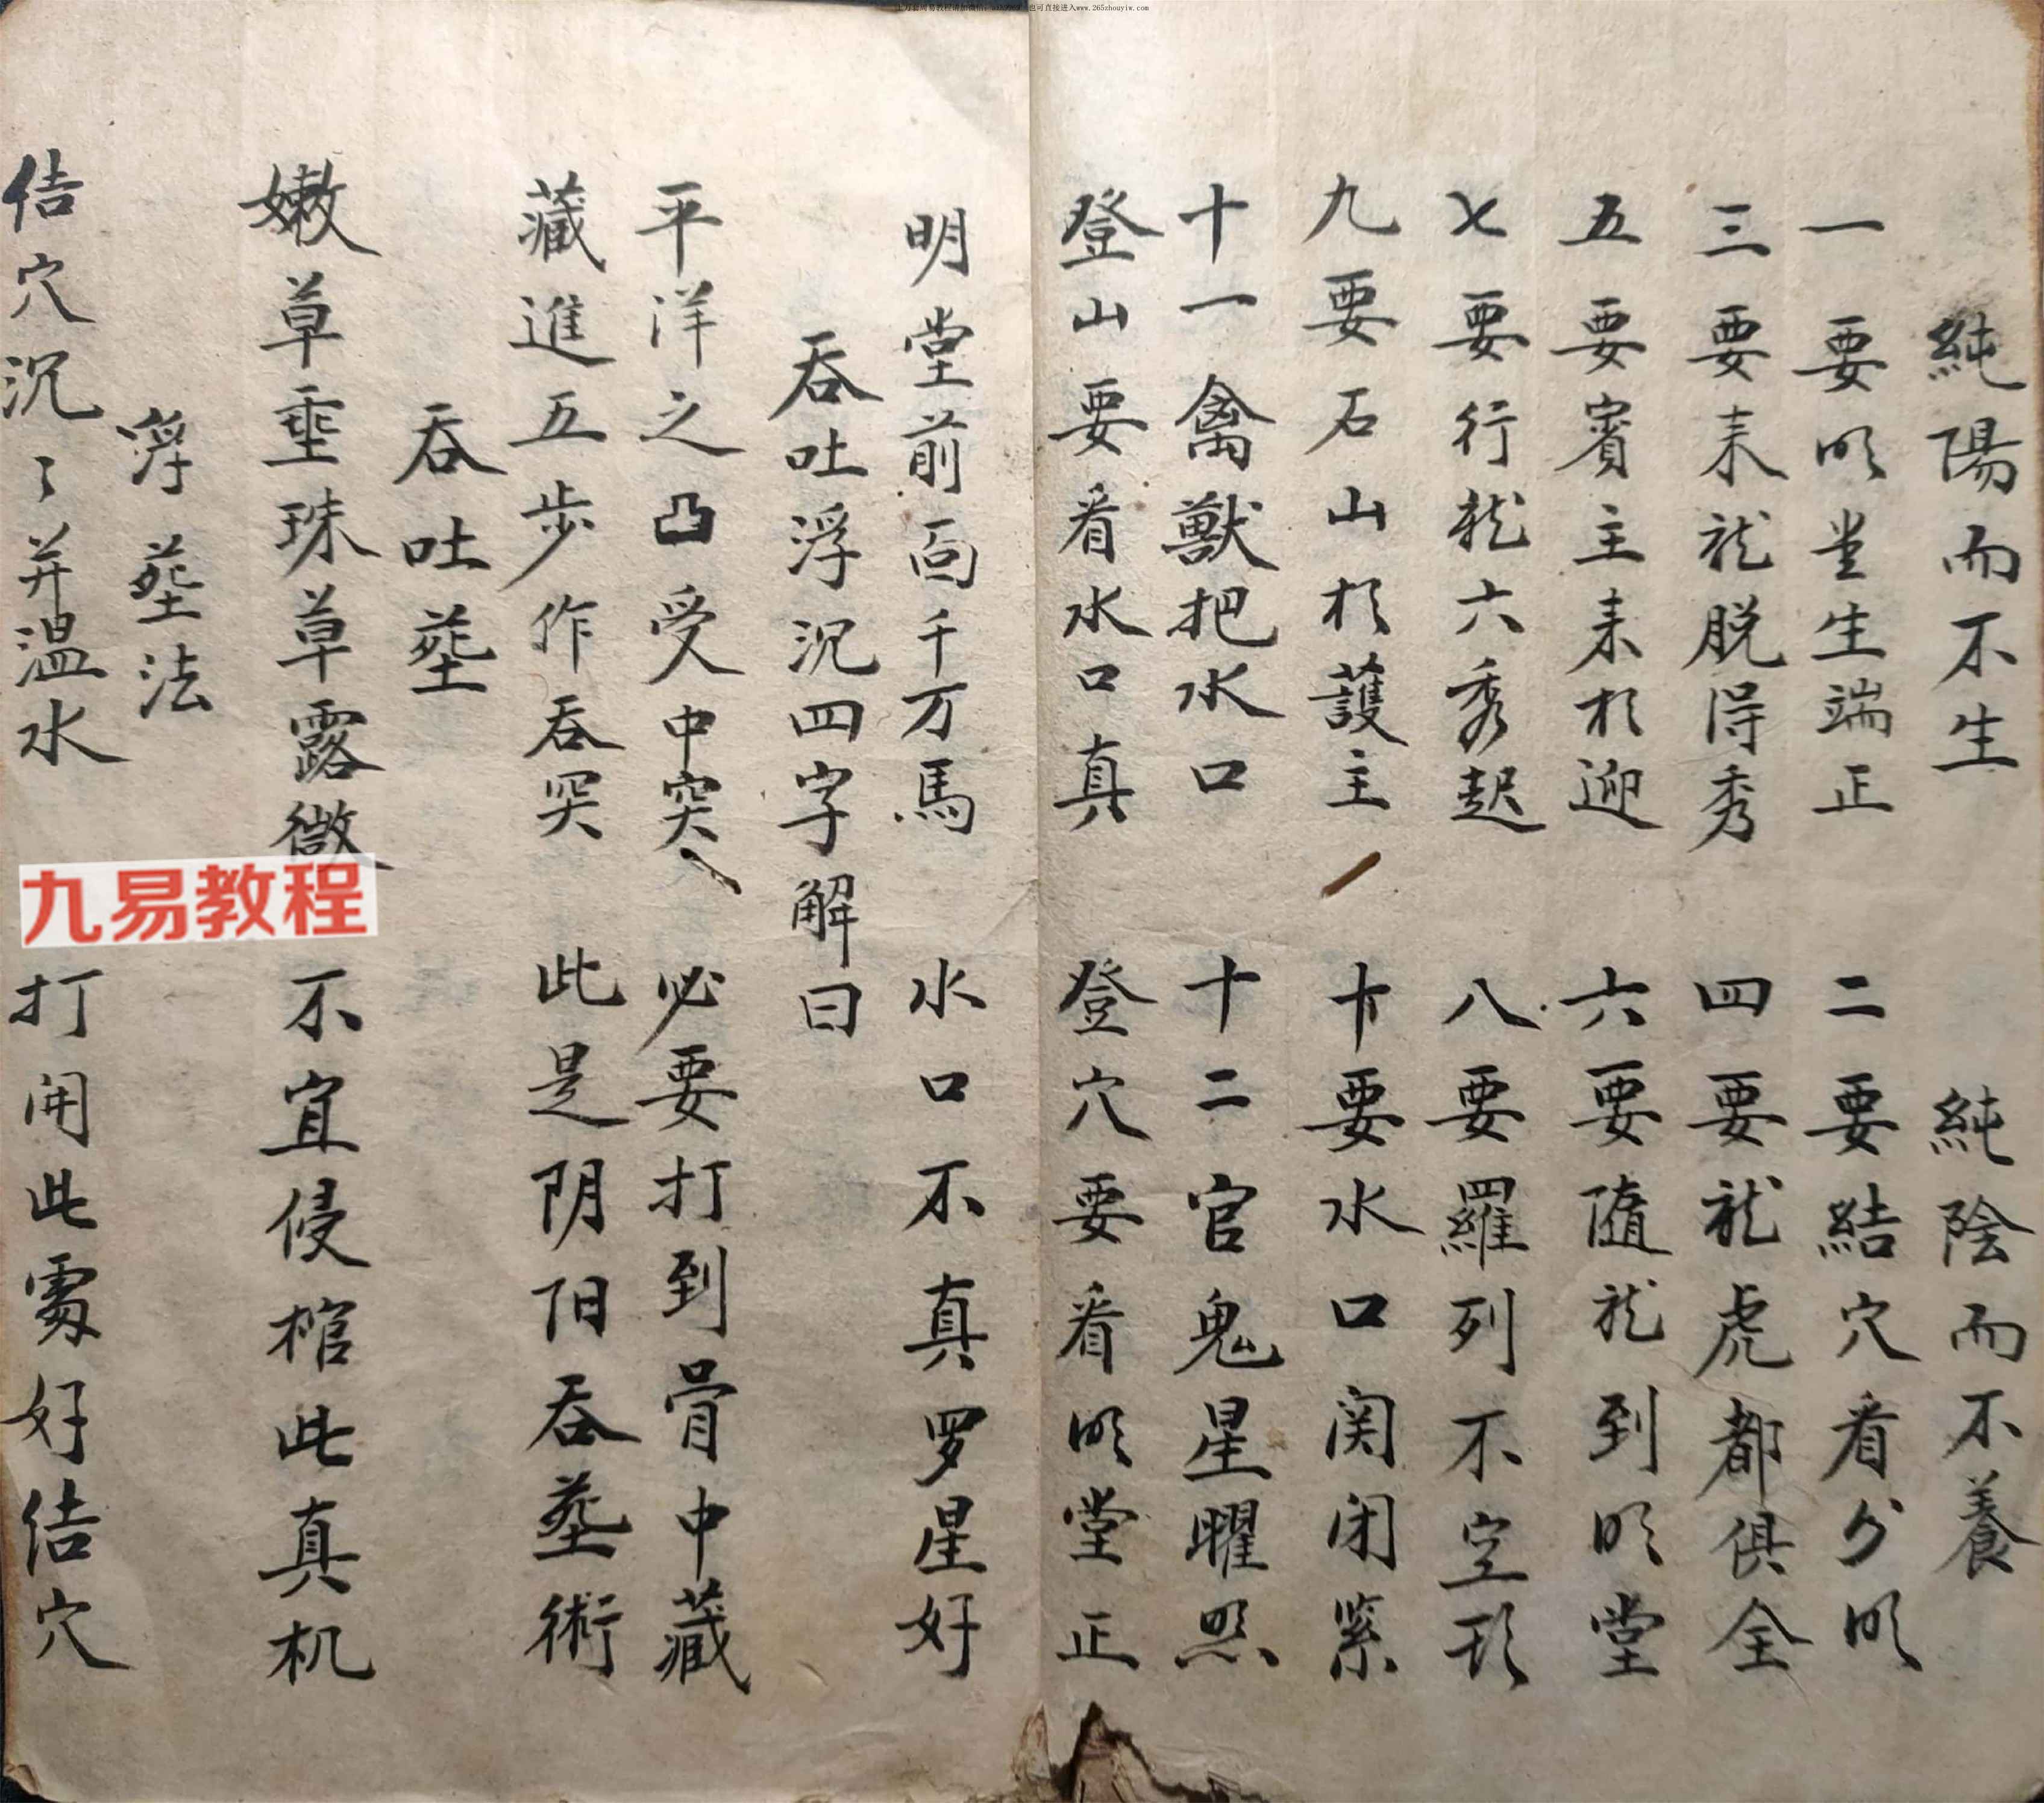 純陽而不生　純陰而不養
一要明堂生端正　二要結穴看分明
三要来龍脱得秀　四要龍虎都俱全
五要賓主来相迎　六要隨龍到明堂
七要行龍六秀起　八要羅列不空形
九要石山相護主　十要水口関闭紧
十一禽獸把水口　十二官鬼星曜照
登山要看水口真　登穴要看明堂正
明堂前面千万馬　水口不真罗星好
吞吐浮沉四字解曰
平洋之凸受中突　必要打到骨中藏
藏進五步作吞突　此是阴阳吞塟術
吞吐塟
嫩草垂珠草露微　不宜侵棺此真机
塟法
佶穴沉〻并温水　打開此處好佶穴
九易教程
也可直接进入www.265zhouyiw.com